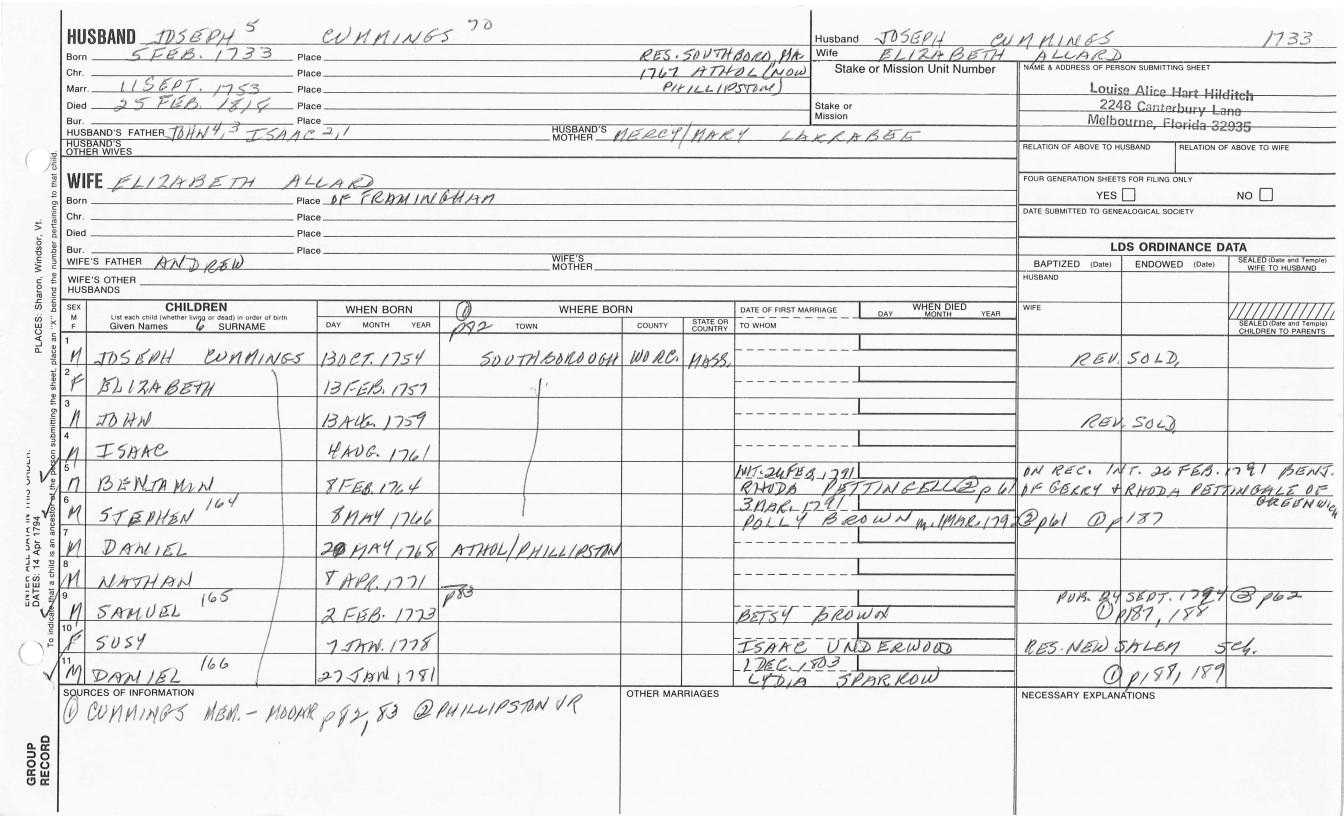 HUSBAND JOSEPH 5 CUMMINGS 70
Born 5 FEB. 1733 Place RES. SOUTHBORO, MA
Chr. Place 1767 ATHOL (NOW
Marr. 11 SEPT. 1753 Place PHILLIPSTON)
Died 25 FEB. 1818 Place
Bur. Place
HUSBAND'S FATHER JOHN 4, 3 ISAAC 2, 1 HUSBAND'S MOTHER MERCY/MARY LARRABEE
HUSBAND'S OTHER WIVES
WIFE ELIZABETH ALLARD
Born Place OF FRAMINGHAM
Chr. Place
Died Place
Bur. Place
WIFE'S FATHER ANDREW WIFE'S MOTHER
WIFE'S OTHER HUSBANDS
Husband JOSEPH CUMMINGS 1733
Wife ELIZABETH ALLARD
Stake or Mission Unit Number
Stake or Mission
NAME & ADDRESS OF PERSON SUBMITTING SHEET
Louise Alice Hart Hilditch
2248 Canterbury Lane
Melbourne, Florida 32935
RELATION OF ABOVE TO HUSBAND RELATION OF ABOVE TO WIFE
FOUR GENERATION SHEETS FOR FILING ONLY
YES NO
DATE SUBMITTED TO GENEALOGICAL SOCIETY
LDS ORDINANCE DATA
BAPTIZED (Date) ENDOWED (Date) SEALED (Date and Temple) WIFE TO HUSBAND
HUSBAND
WIFE
SEALED (Date and Temple) CHILDREN TO PARENTS
SEX M F CHILDREN WHEN BORN ① p82 WHERE BORN DATE OF FIRST MARRIAGE WHEN DIED
List each child (whether living or dead) in order of birth
Given Names 6 SURNAME DAY MONTH YEAR TOWN COUNTY STATE OR COUNTRY TO WHOM DAY MONTH YEAR
1 M JOSEPH CUMMINGS 13 OCT. 1754 SOUTHBOROUGH WORC. MASS. REV. SOLD.
2 F ELIZABETH 13 FEB. 1757
3 M JOHN 13 AUG. 1759 REV. SOLD
4 M ISAAC 4 AUG. 1761
5 M BENJAMIN 8 FEB. 1764 INT. 26 FEB. 1791 ON REC. INT. 26 FEB. 1791 BENJ.
RHODA PETTINGELL ② p61 OF GERRY + RHODA PETTINGALE OF GREENWICH
6 M STEPHEN 164 8 MAY 1766 3 MAR. 1791
POLLY BROWN m. 1 MAR. 1792 ② p61 ① p187
7 M DANIEL 20 MAY, 1768 ATHOL/PHILLIPSTON
8 M NATHAN 8 APR. 1771
9 M SAMUEL 165 2 FEB. 1773 p83 BETSY BROWN PUB. 24 SEPT. 1794 ② p62
① p187, 188
10 F SUSY 7 JAN. 1778 ISAAC UNDERWOOD RES. NEW SALEM 5 ch.
11 M DANIEL 166 27 JAN 1781 1 DEC. 1803
LYDIA SPARROW ① p188, 189
SOURCES OF INFORMATION OTHER MARRIAGES NECESSARY EXPLANATIONS
① CUMMINGS MEM. - MOOAR p82, 83 ② PHILLIPSTON VR
GROUP RECORD
ENTER ALL DATA IN THIS ORDER:
DATES: 14 Apr 1794
PLACES: Sharon, Windsor, Vt.
To indicate that a child is an ancestor of the person submitting the sheet, place an "X" behind the number pertaining to that child.